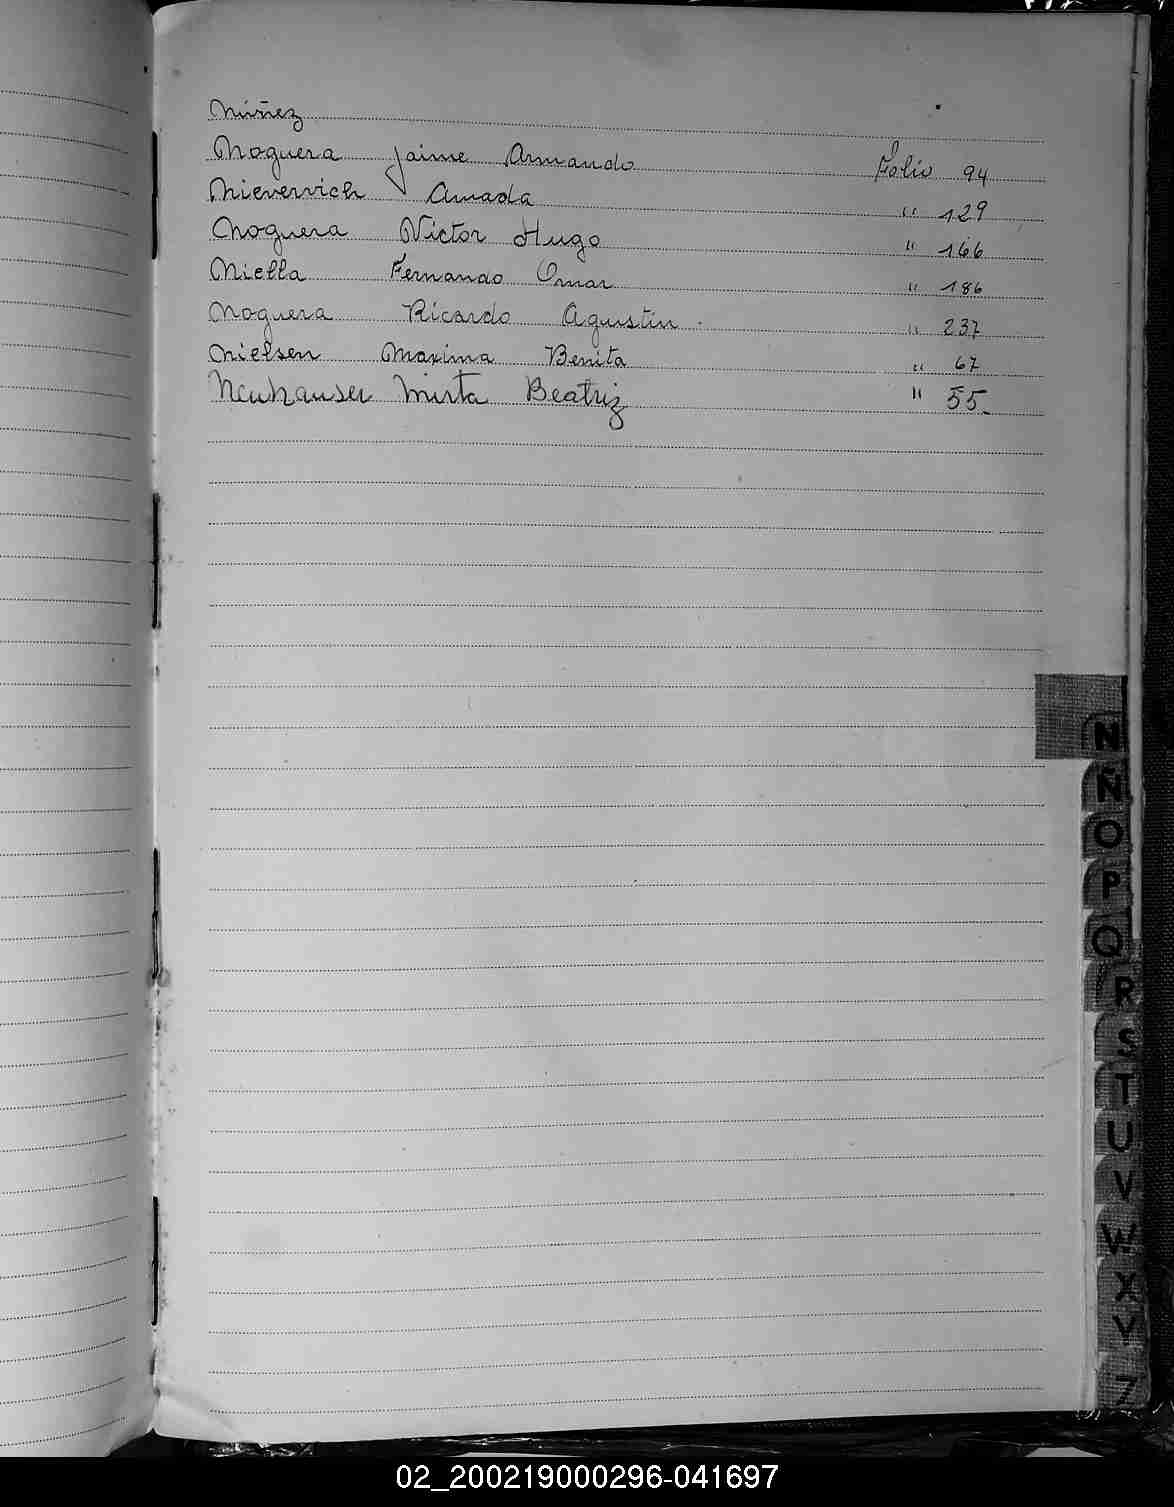 Núñez
Noguera Jaime Armando Folio 94
Nievervich Amada " 129
Noguera Victor Hugo " 166
Niella Fernando Omar " 186
Noguera Ricardo Agustin " 237
Nielsen Maxima Benita " 67
Neuhauser Mirta Beatriz " 55
N
Ñ
O
P
Q
R
S
T
U
V
W
X
Y
Z
02_200219000296-041697